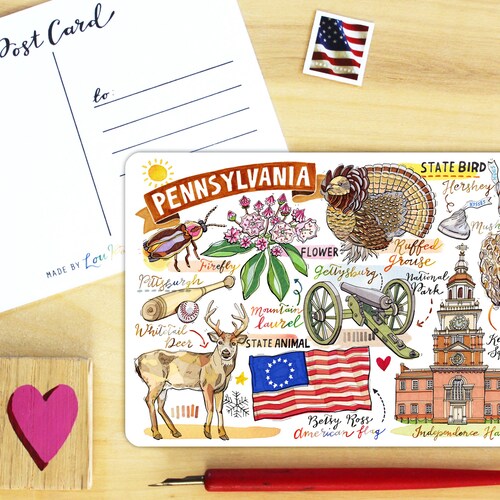 Post Card
to:
MADE BY
PENNSYLVANIA
STATE BIRD
Hershey
Firefly
FLOWER
Ruffed
grouse
Pittsburgh
Gettysburg
National
Park
Mountain
laurel
Whittail
Deer
STATE ANIMAL
Betsy Ross
American flag
Independence